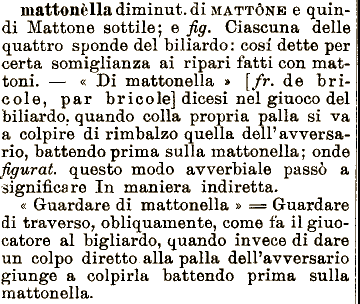 mattonèlla diminut. di MATTÓNE e quin-
di Mattone sottile; e fig. Ciascuna delle
quattro sponde del biliardo: cosí dette per
certa somiglianza ai ripari fatti con mat-
toni. — « Di mattonella » [fr. de bri-
cole, par bricole] dicesi nel giuoco del
biliardo, quando colla propria palla si va
a colpire di rimbalzo quella dell'avversa-
rio, battendo prima sulla mattonella; onde
figurat. questo modo avverbiale passò a
significare In maniera indiretta.
« Guardare di mattonella » = Guardare
di traverso, obliquamente, come fa il giuo-
catore al bigliardo, quando invece di dare
un colpo diretto alla palla dell'avversario
giunge a colpirla battendo prima sulla
mattonella.